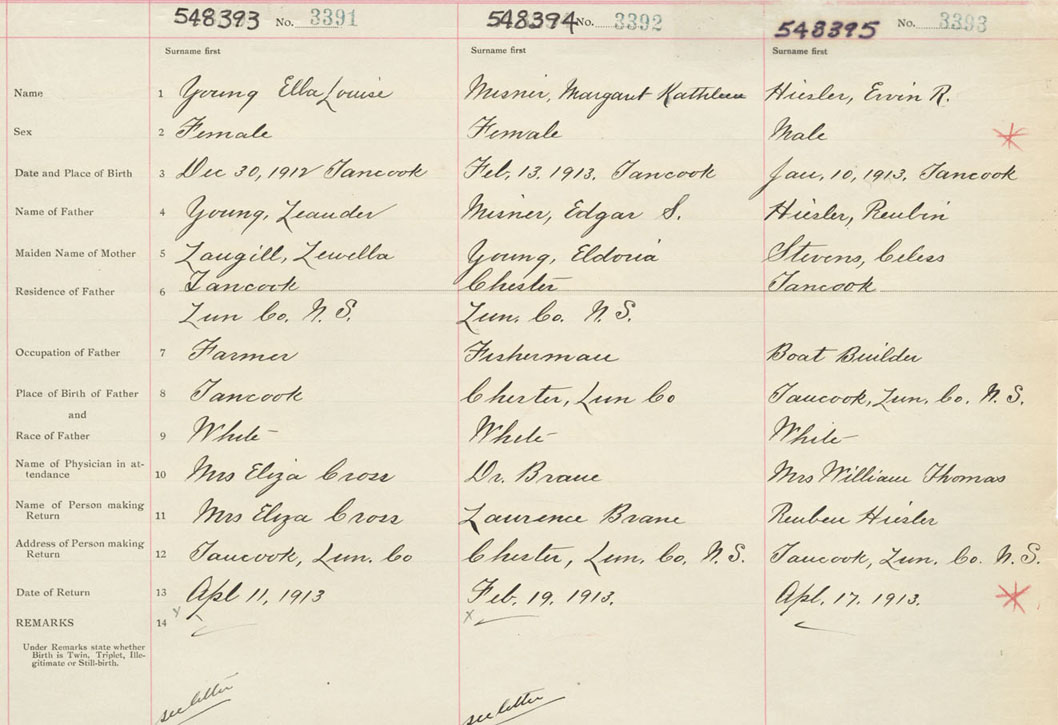 548393 No. 3391 548394 No. 3392 548395 No. 3393
Surname first Surname first Surname first
Name 1 Young Ella Louise Misner, Margaret Kathleen Hiesler, Ervin R.
Sex 2 Female Female Male
Date and Place of Birth 3 Dec 30, 1912 Tancook Feb. 13. 1913. Tancook Jan. 10, 1913. Tancook
Name of Father 4 Young, Leander Misner, Edgar S. Hiesler, Reubin
Maiden Name of Mother 5 Langill, Lewella Young, Eldoria Stevens, Celess
Residence of Father 6 Tancook Chester Tancook
Lun Co. N. S. Lun. Co. N. S.
Occupation of Father 7 Farmer Fisherman Boat Builder
Place of Birth of Father 8 Tancook Chester, Lun Co Tancook, Lun. Co. N. S.
and
Race of Father 9 White White White
Name of Physician in at-
tendance 10 Mrs Eliza Cross Dr. Brane Mrs William Thomas
Name of Person making
Return 11 Mrs Eliza Cross Laurence Brane Reuben Hiesler
Address of Person making
Return 12 Tancook, Lun. Co Chester, Lun. Co. N. S. Tancook, Lun. Co. N. S.
Date of Return 13 Apl 11, 1913 Feb. 19. 1913. Apl. 17. 1913.
REMARKS 14
Under Remarks state whether
Birth is Twin, Triplet, Ille-
gitimate or Still-birth.
see letter see letter